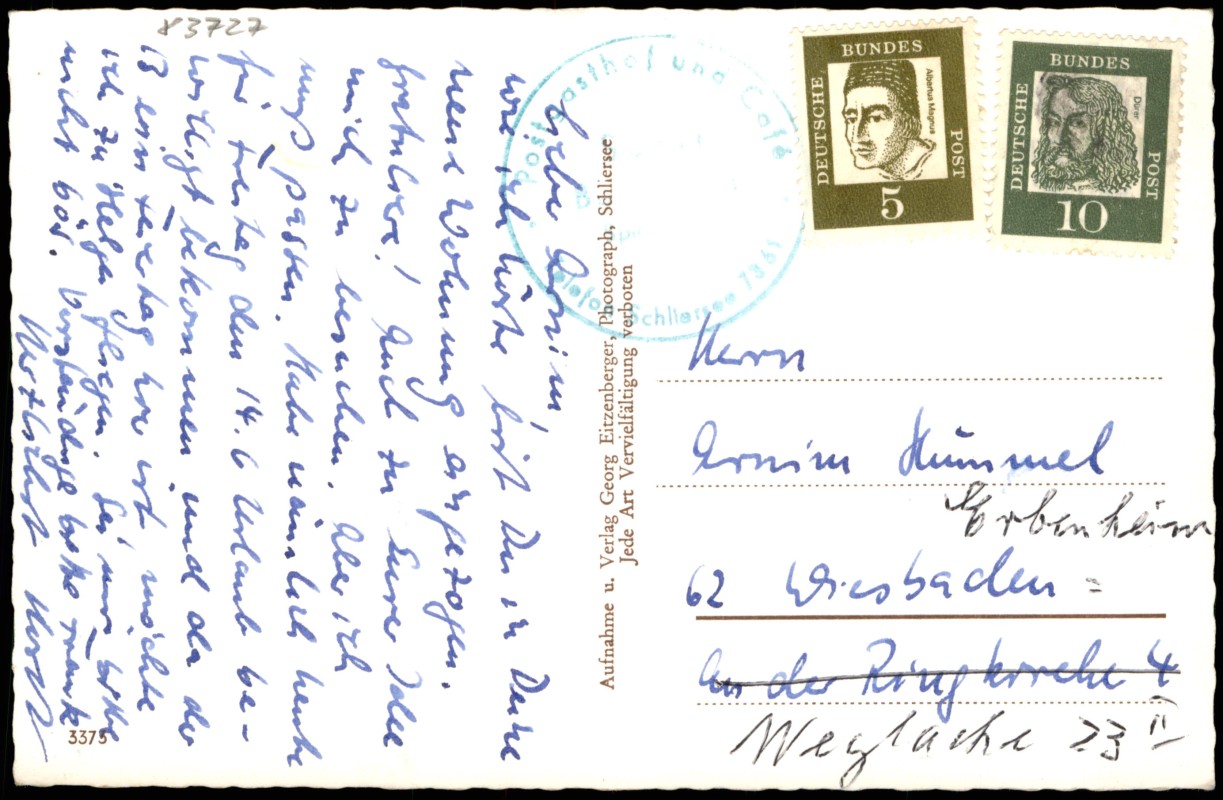 83727
Lieber Armin,
wie ich hörte bist Du in Deine
neue Wohnung eingezogen.
Gratuliere! Auch zu Eurer Idee
mich zu besuchen. Aber ich
muß passen. Habe nämlich heute
für Freitag den 14.6 Urlaub be-
willigt bekommen und da der
13 ein Feiertag hier ist möchte
ich zu Helga fliegen. Sei mir bitte
nicht bös. Verständige bitte Frank
Herzlichst Horst
3375
Aufnahme u. Verlag Georg Eitzenberger, Photograph, Schliersee
Jede Art Vervielfältigung verboten
Postgasthof und Café
Telefon Schliersee 7351
DEUTSCHE BUNDES POST
Albertus Magnus
5
DEUTSCHE BUNDES POST
Dürer
10
Herrn
Armin Hümmel
Erbenheim
62 Wiesbaden =
An der Ringkirche 4
Weglache 23 II